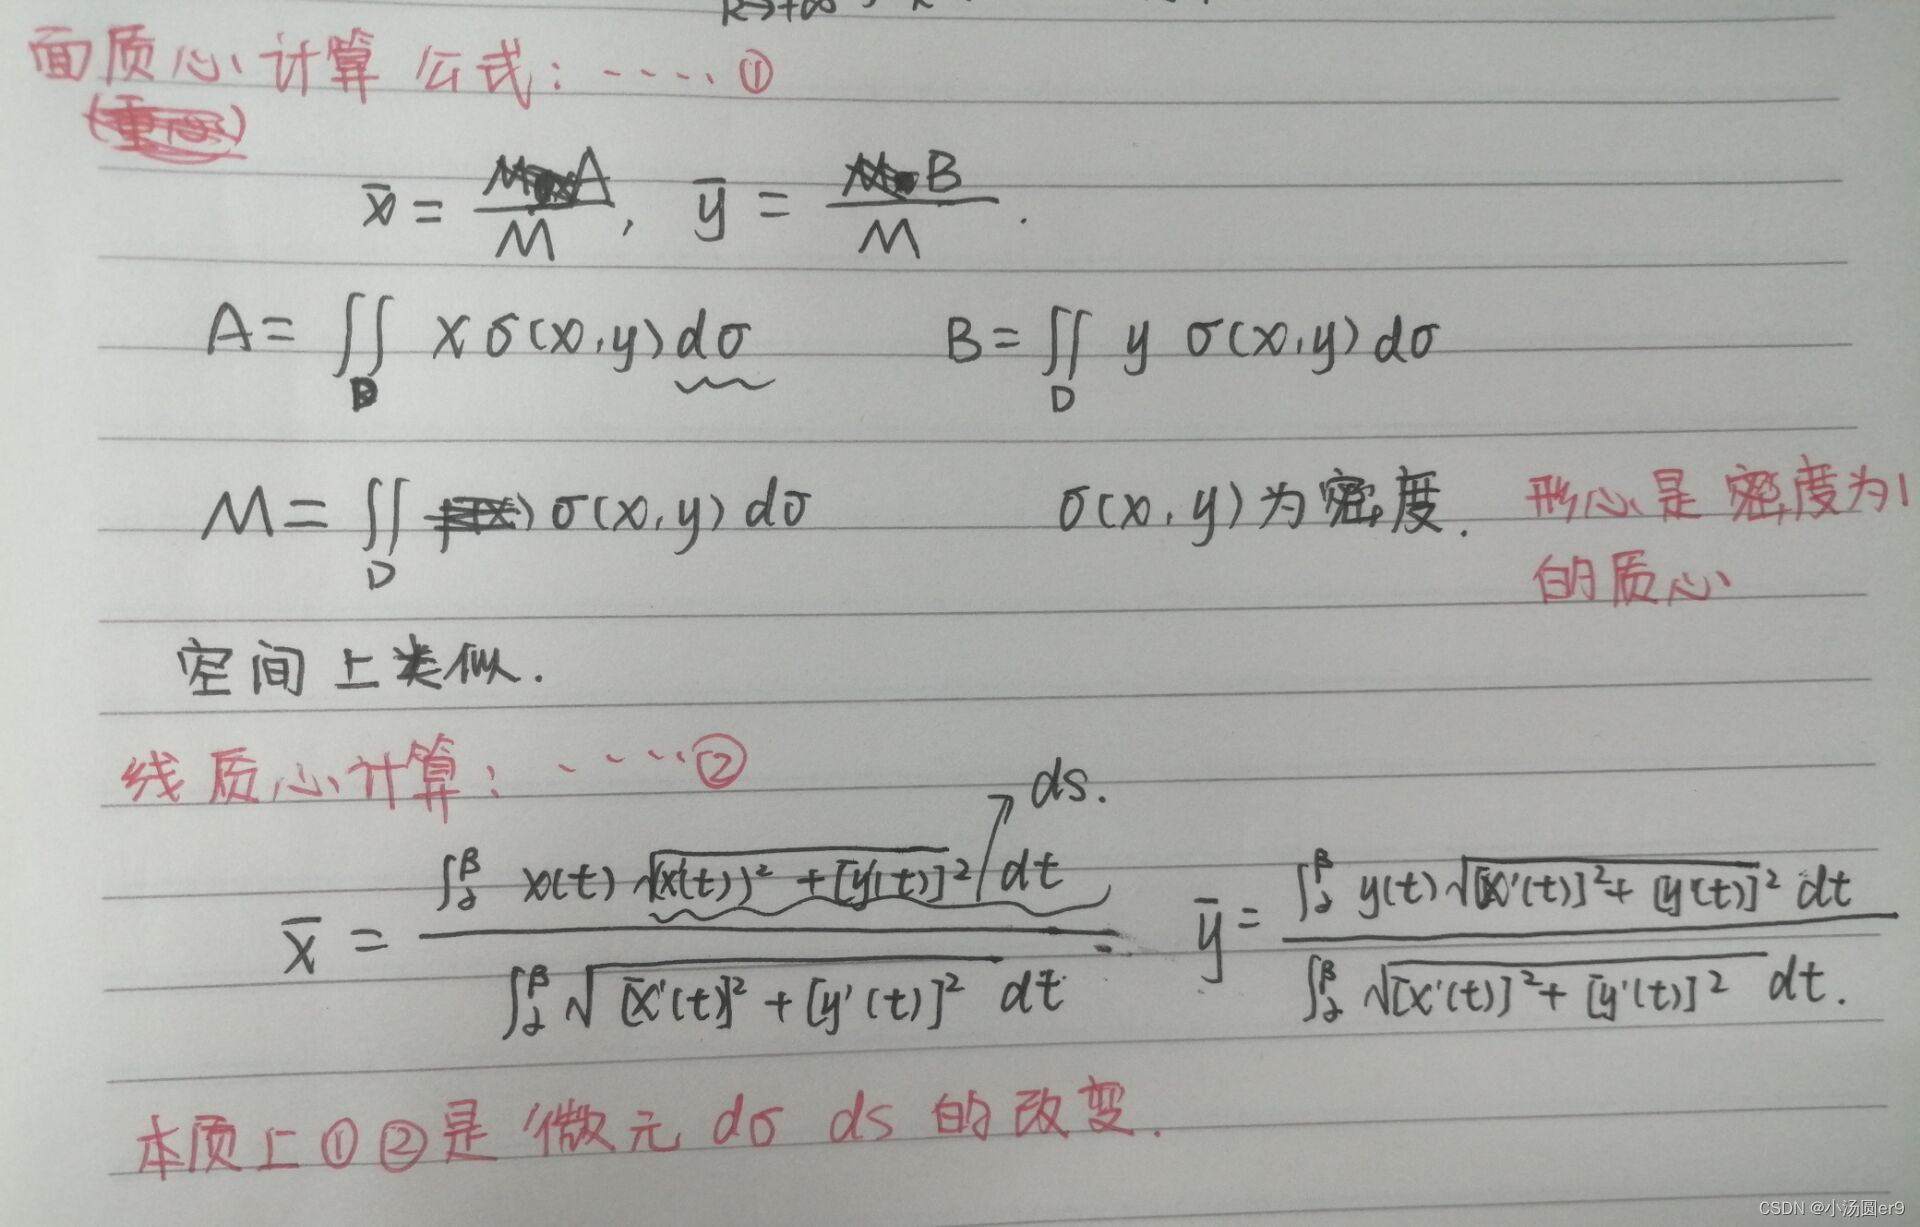 k→+∞
面质心计算公式：·····①
x̄ = A/M , ȳ = B/M .
A = ∬_D x σ(x,y) dσ B = ∬_D y σ(x,y) dσ
M = ∬_D σ(x,y) dσ σ(x,y)为密度. 形心是密度为1
的质心
空间上类似.
线质心计算：·····②
ds.
x̄ = ∫_α^β x(t) √(x'(t))² + [y'(t)]² dt / ∫_α^β √[x'(t)]² + [y'(t)]² dt ȳ = ∫_α^β y(t) √[x'(t)]² + [y'(t)]² dt / ∫_α^β √[x'(t)]² + [y'(t)]² dt.
本质上①②是微元 dσ ds 的改变.
CSDN @小汤圆er9